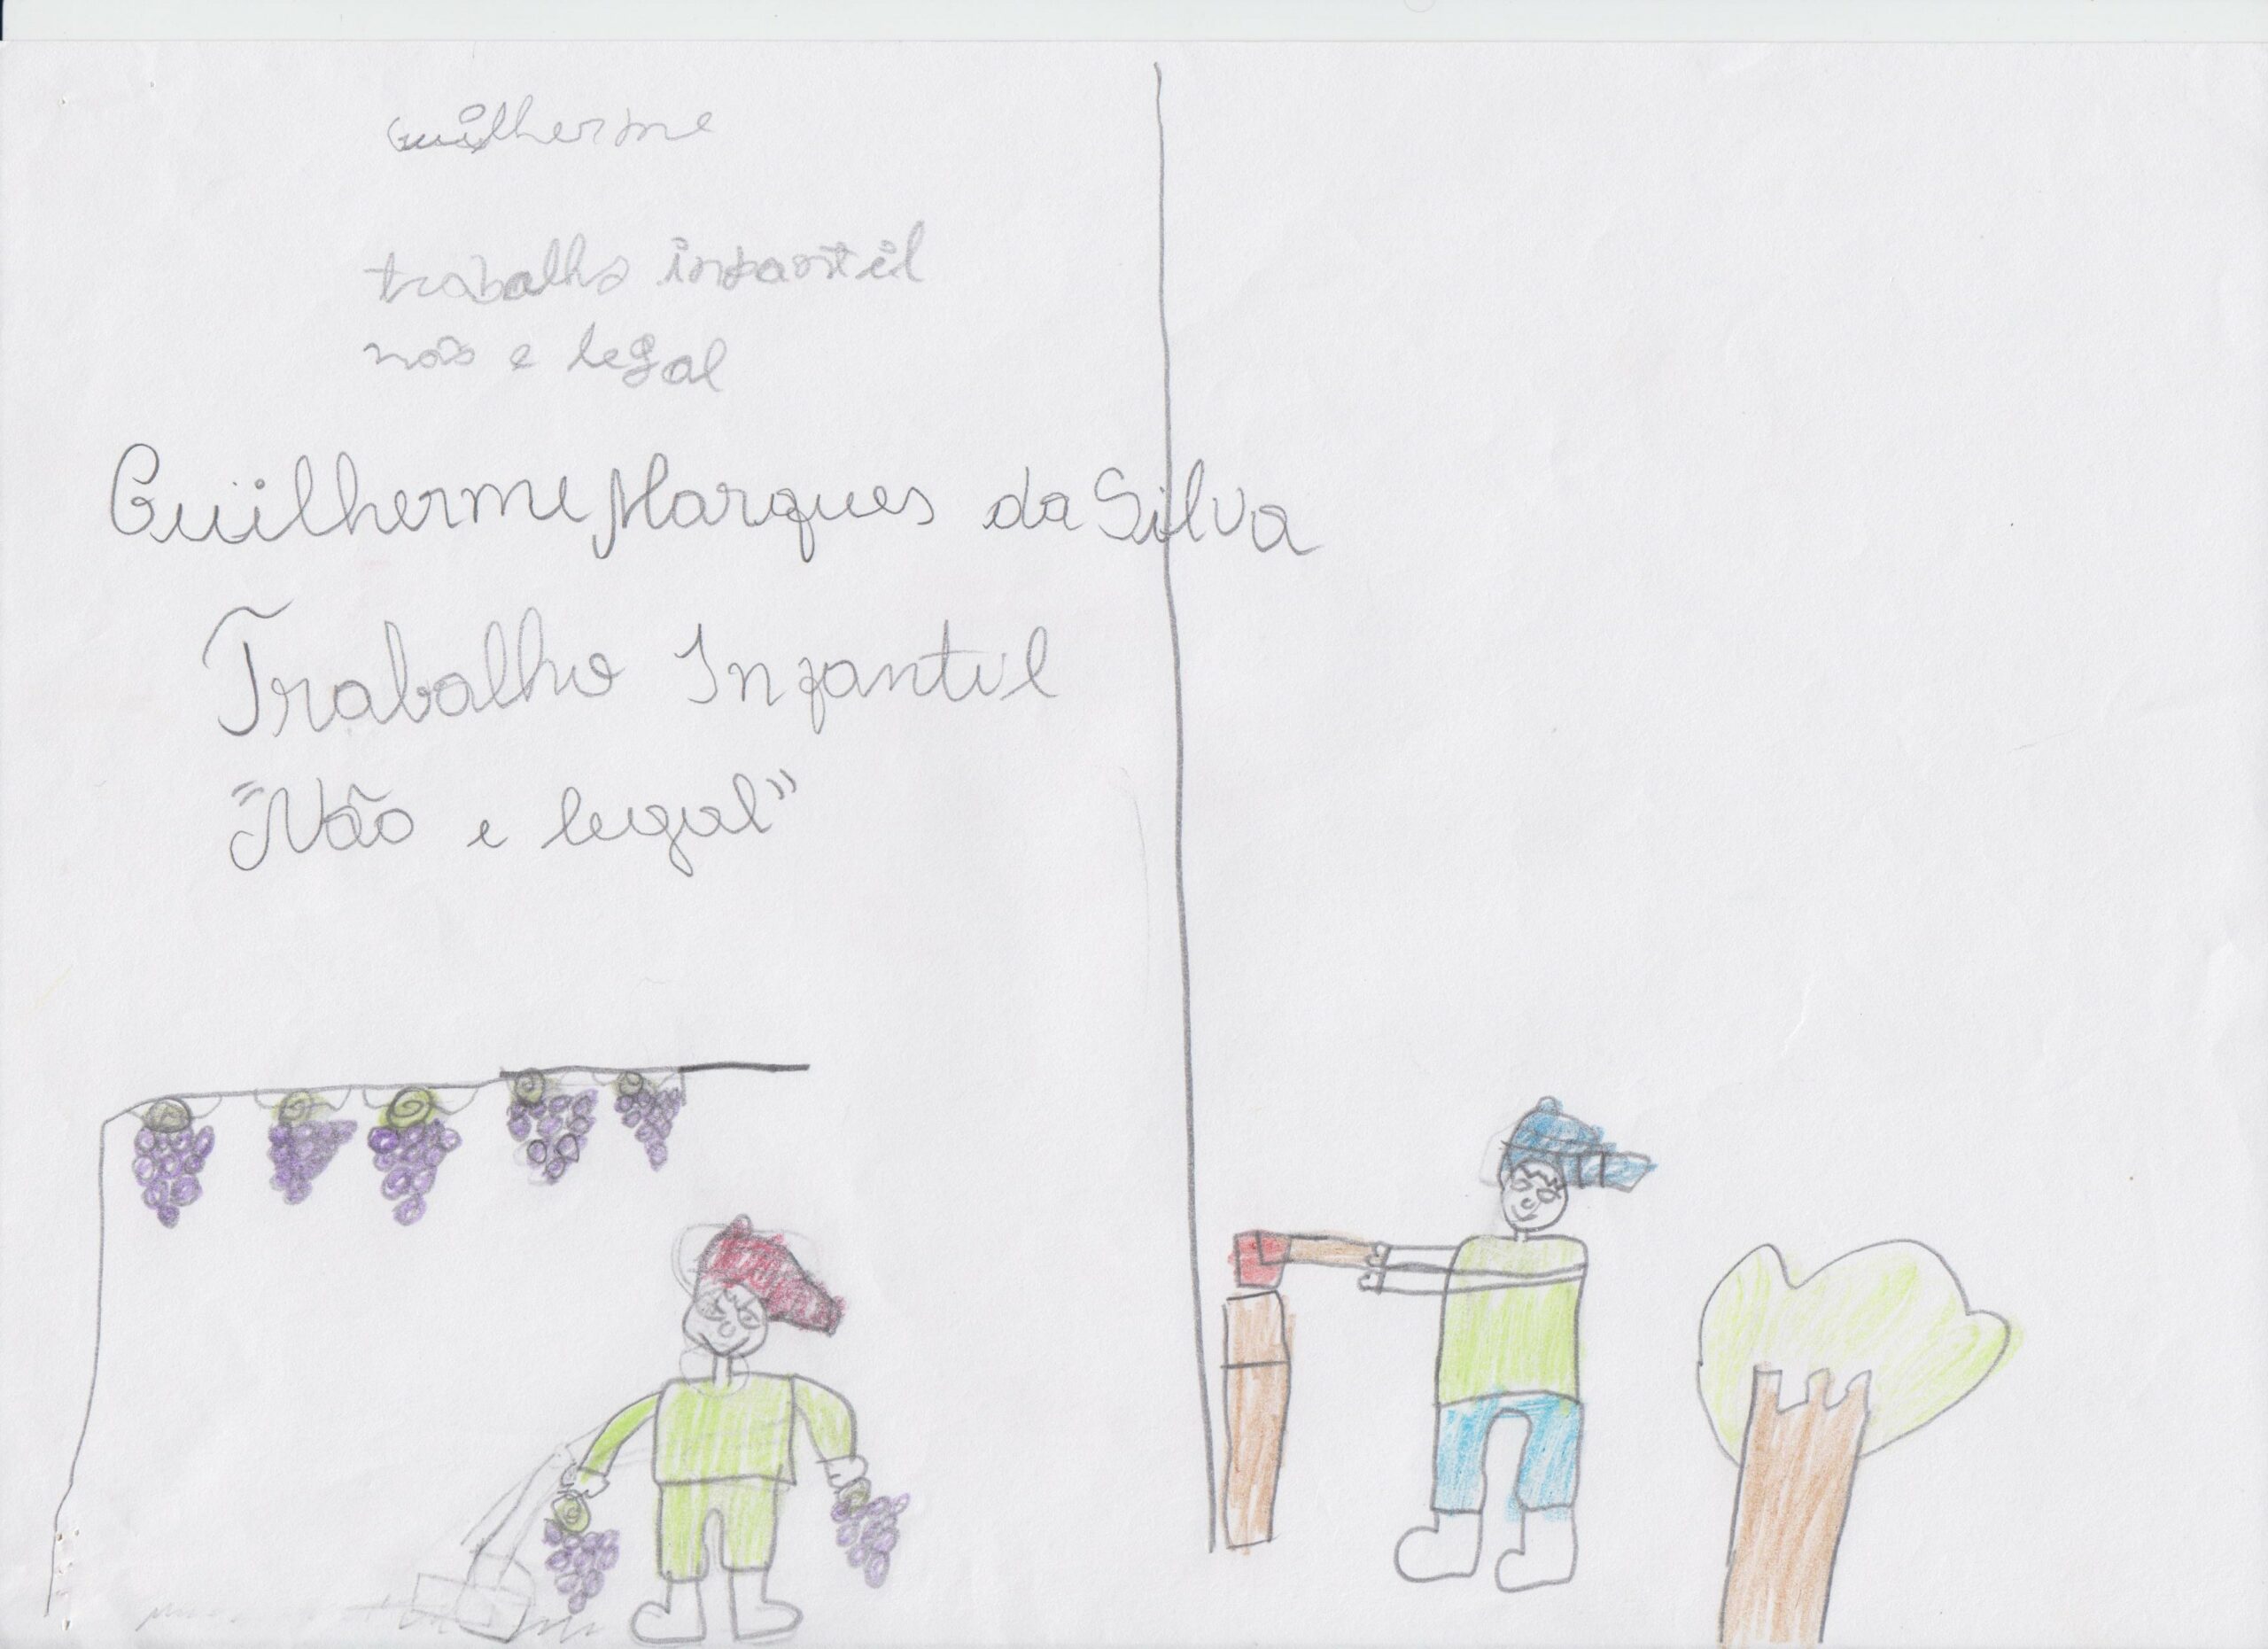 Guilherme
trabalho infantil
não e legal
Guilherme Marques da Silva
Trabalho Infantil
"Não e legal"